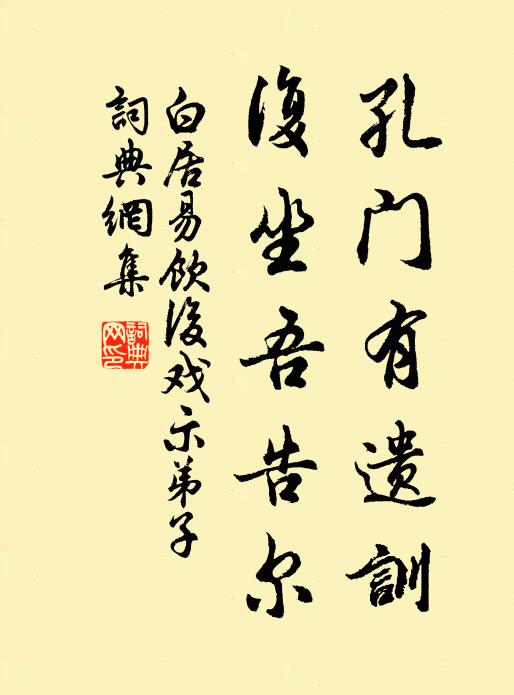 孔门有遗訓
復坐吾告尔
白居易飲後戏示弟子
詞典網集
詞典網印